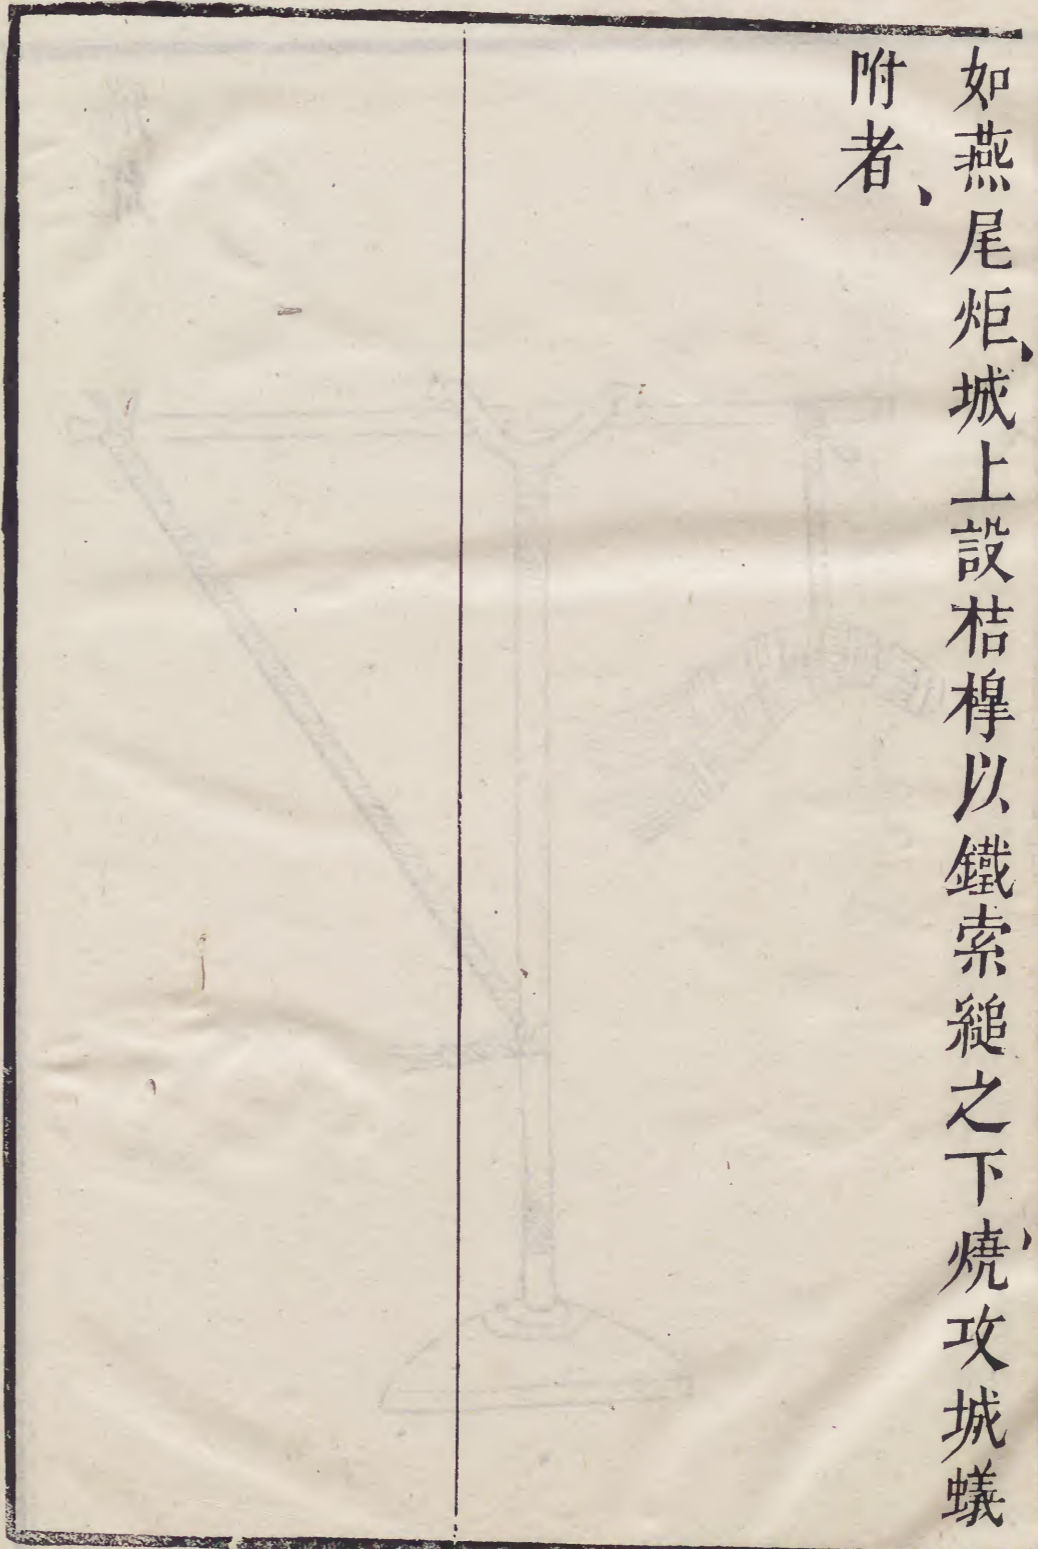 如燕尾炬、城上設桔槹以鐵索縋之下、燒攻城蟻
附者、